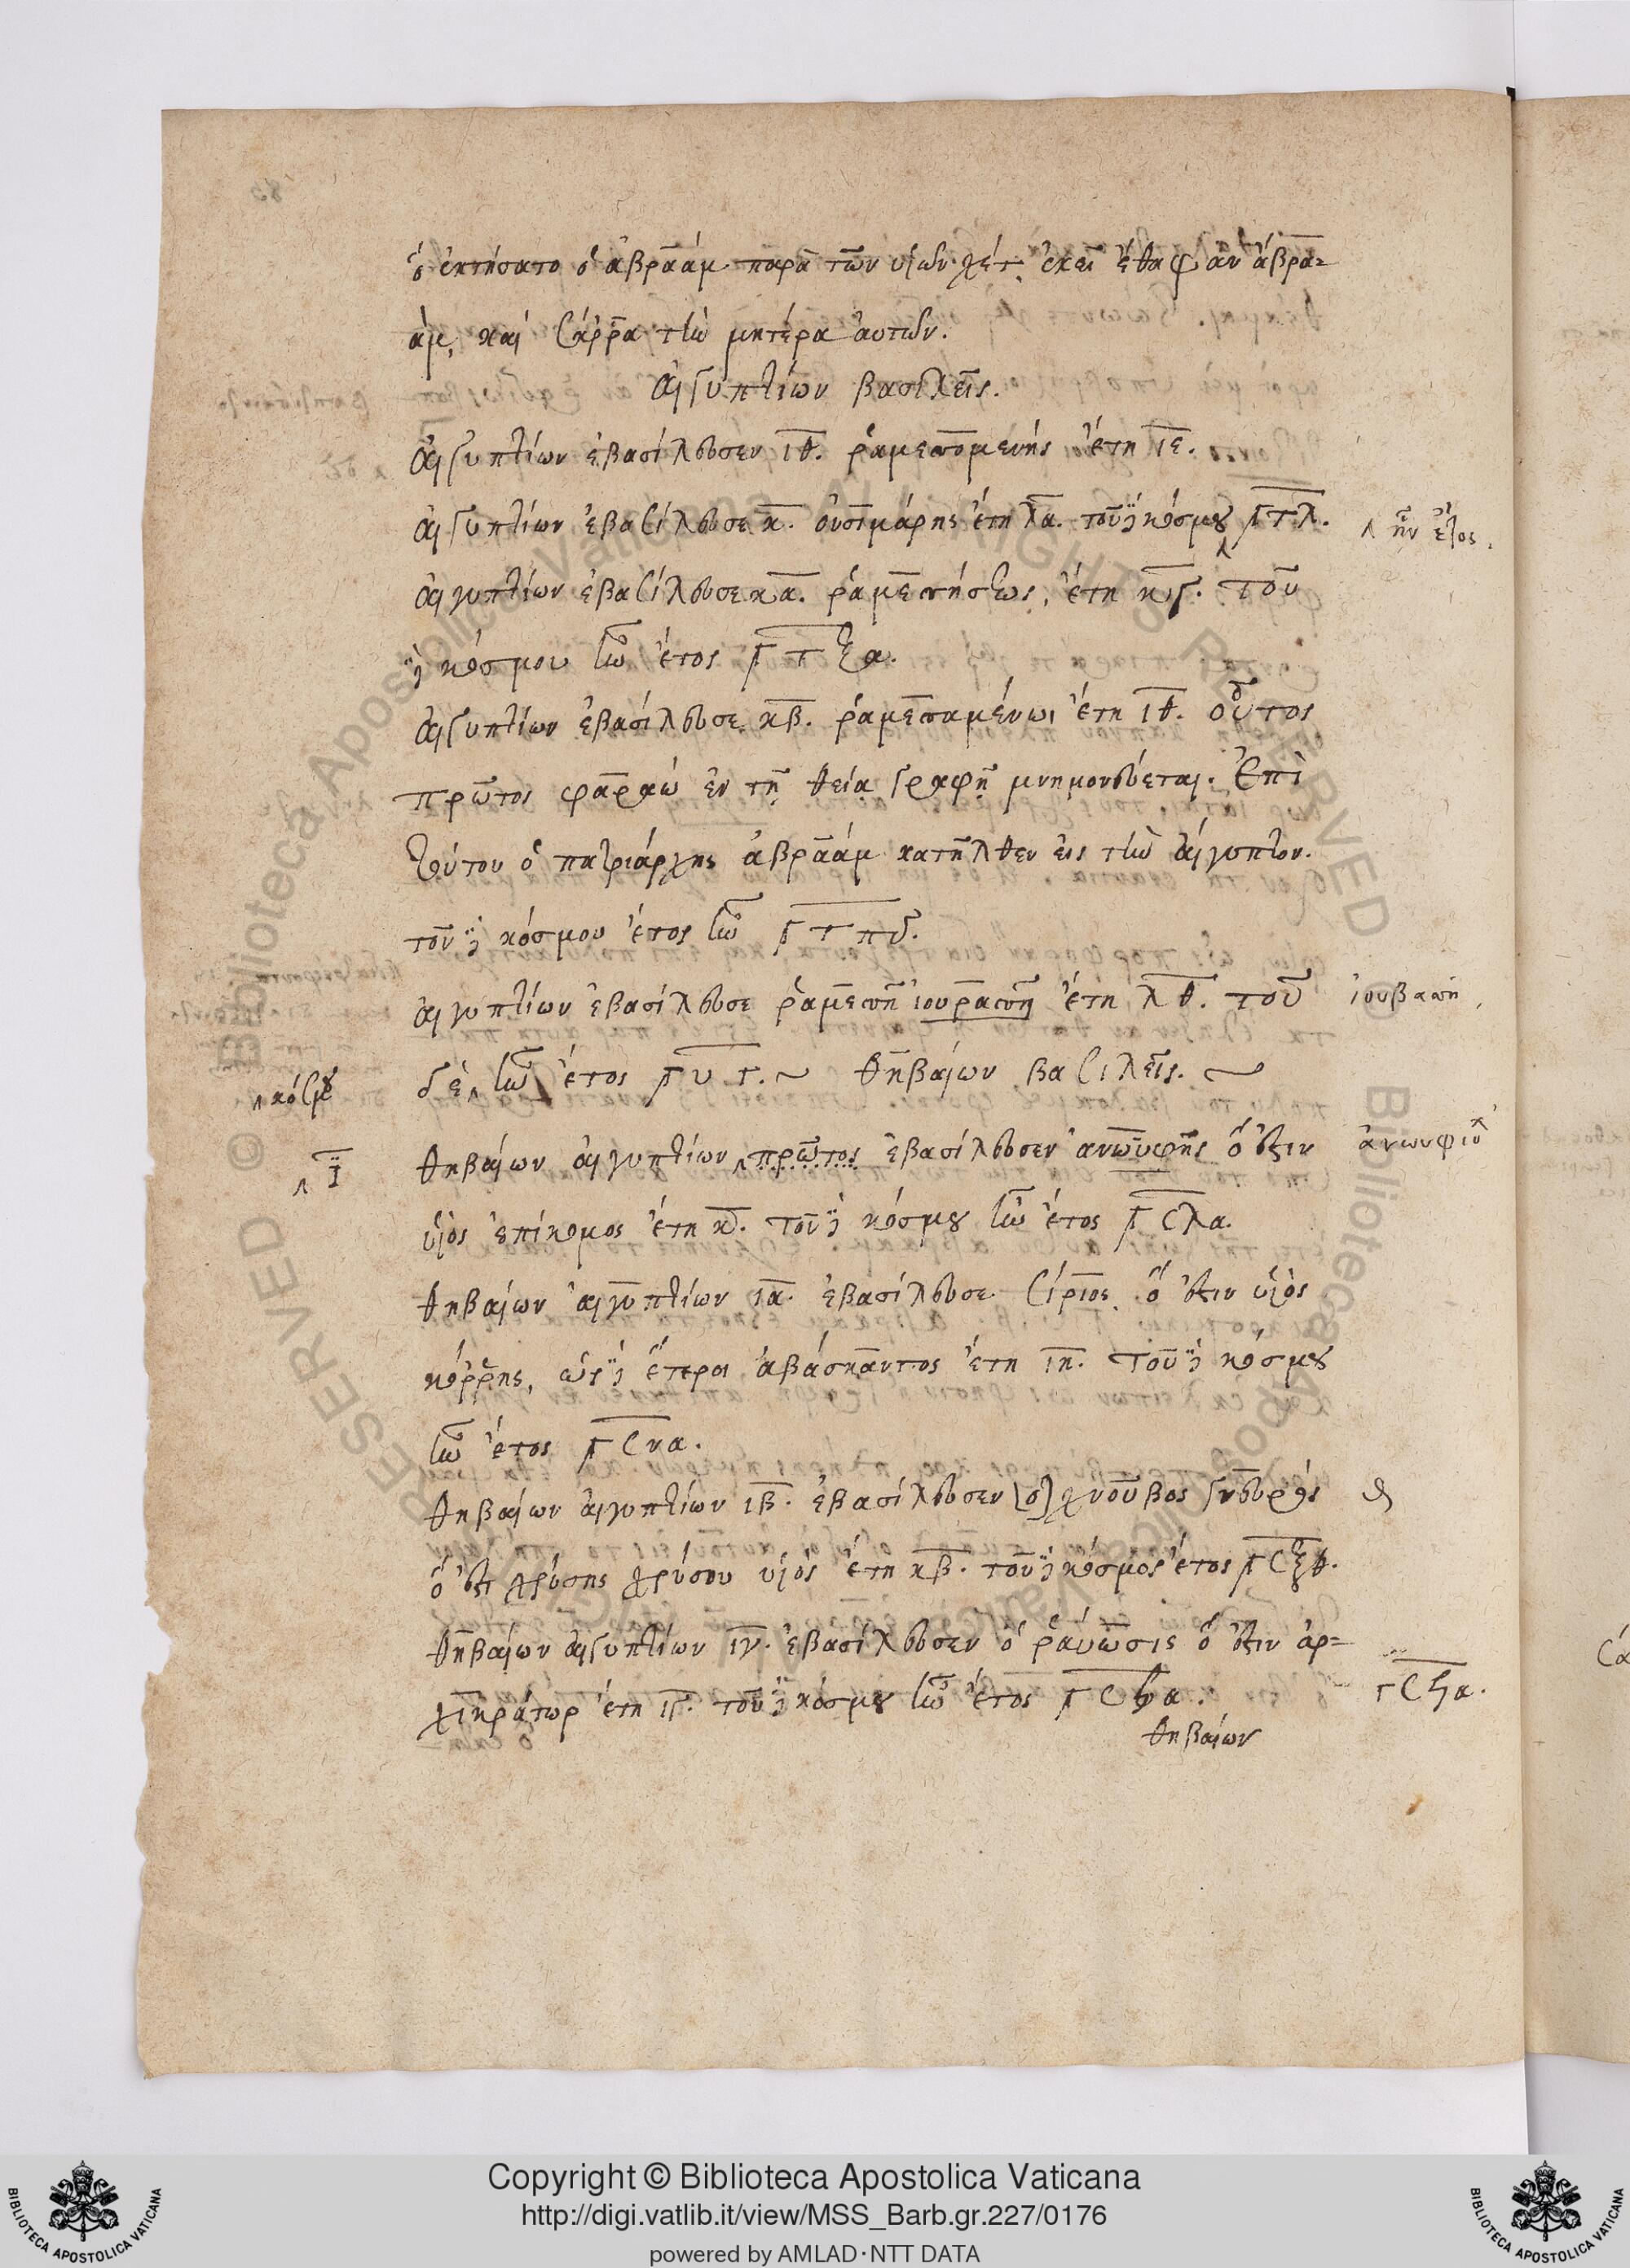 ὃ ἐκτήσατο ὁ ἀβραάμ παρὰ τῶν υἱῶν χέτ, ἐκεῖ ἔθαψαν ἀβρα=
άμ, καὶ σάρρα τὴν μητέρα αὐτῶν.
Αἰγυπτίων βασιλεῖς.
Αἰγυπτίων ἐβασίλευσεν ιθ. ῥαμεσσομενής ἔτη ιε.
Αἰγυπτίων ἐβασίλευσε κ. οὐσιμάρης ἔτη λα. τοῦ ϳ κόσμου ͵γτλ.
ἦν ἔτος.
Αἰγυπτίων ἐβασίλευσε κα. ῥαμεσσήσεως, ἔτη κγ. τοῦ
ϳ κόσμου ἦν ἔτος ͵γτξα.
Αἰγυπτίων ἐβασίλευσε κβ. ῥαμεσσαμένωι ἔτη ιθ. οὗτος
πρῶτος φαραώ ἐν τῇ θείᾳ γραφῇ μνημονεύεται. Ἐπὶ
τούτου ὁ πατριάρχης ἀβραάμ κατῆλθεν εἰς τὴν αἴγυπτον.
τοῦ ϳ κόσμου ἔτος ἦν ͵γτπδ.
Αἰγυπτίων ἐβασίλευσε ῥαμεσσῆ ἰουρασσῆ ἔτη λθ. τοῦ
ἰουβασσῆ,
κόσμου
δὲ ἦν ἔτος ͵γυγ. ~ θηβαίων βασιλεῖς. ~
ι
θηβαίων αἰγυπτίων πρῶτος ἐβασίλευσεν ἀνωϋφῆς ὅ ἐστιν
υἱὸς ἐπίκομος ἔτη κ. τοῦ ϳ κόσμου ἦν ἔτος ͵γσλα.
θηβαίων αἰγυπτίων ια. ἐβασίλευσε σίριος, ὅ ἐστιν υἱὸς
κόρρης, ὡς ϳ ἕτεροι ἀβάσκαντος ἔτη ιη. τοῦ ϳ κόσμου
ἦν ἔτος ͵γσνα.
θηβαίων αἰγυπτίων ιβ. ἐβασίλευσεν [ὁ] χνοῦβος γνευρός
ὅ ἐστι χρύσης χρύσου υἱός ἔτη κβ. τοῦ ϳ κόσμος ἔτος ͵γσξθ.
θηβαίων αἰγυπτίων ιγ. ἐβασίλευσεν ὁ ῥαύωσις ὅ ἐστιν ἀρ=
χικράτωρ ἔτη ιγ. τοῦ ϳ κόσμου ἦν ἔτος ͵γσϟα.
γσϟα.
θηβαίων
Copyright © Biblioteca Apostolica Vaticana
http://digi.vatlib.it/view/MSS_Barb.gr.227/0176
powered by AMLAD·NTT DATA